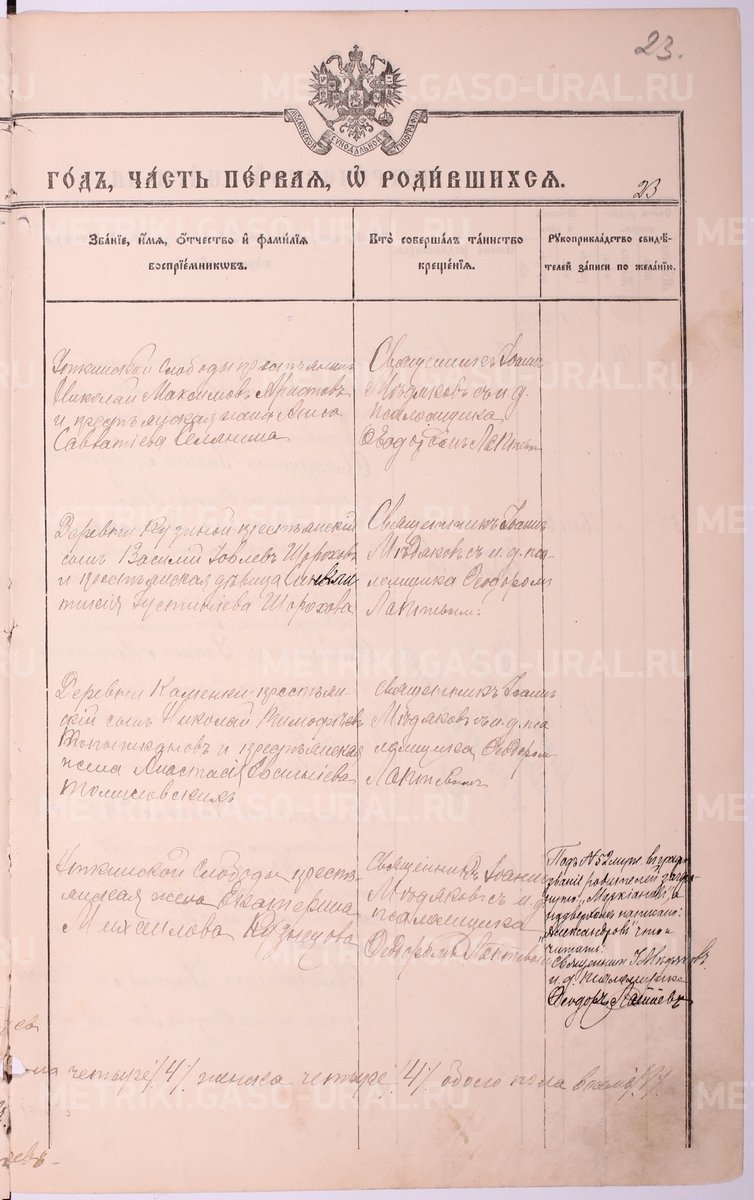 23.
МОСКОВСКОЙ СѴНОДАЛЬНОЙ ТИПОГРАФІИ
ГОДЪ, ЧАСТЬ ПЕРВАЯ, Ѡ РОДИВШИХСЯ.
23
Званіе, имя, отчество и фамилія воспріемниковъ.
Кто совершалъ таинство крещенія.
Рукоприкладство свидѣтелей записи по желанію.
Уткинской Слободы крестьянинъ
Николай Максимовъ Аристовъ
и крестьянская жена Анна
Савватіева
Священникъ Іоаннъ
Мѣдяковъ съ и. д.
псаломщика
Ѳеодоромъ Лаптевымъ
Деревни Кузиной крестьянскій
сынъ Василій Іовлевъ Шороховъ
и крестьянская дѣвица Синкли-
тикія Густиніева Шорохова
Священникъ Іоаннъ
Мѣдяковъ съ и. д. пса-
ломщика Ѳеодоромъ
Лаптевымъ
Деревни Каменки крестьян-
скій сынъ Николай Тимофѣевъ
и крестьянская
жена Анастасія
Священникъ Іоаннъ
Мѣдяковъ съ и. д. пса-
ломщика Ѳеодоромъ
Лаптевымъ
Уткинской Слободы кресть-
янская жена Екатерина
Михаилова Кузнецова
Священникъ Іоаннъ
Мѣдяковъ съ и. д.
псаломщика
Ѳеодоромъ Лаптевымъ
Подъ № 52 муж. въ графѣ
званіи родителей зачерк-
нуто: „Маркіановъ“, а
подверхомъ написано:
„Александровъ“ что и
читать.
Священникъ І. Мѣдяковъ.
И. д. псаломщика
Ѳеодоръ Лаптевъ
четыре /4/ женска четыре /4/ обоего пола восемь /8/
METRIKI.GASO-URAL.RU